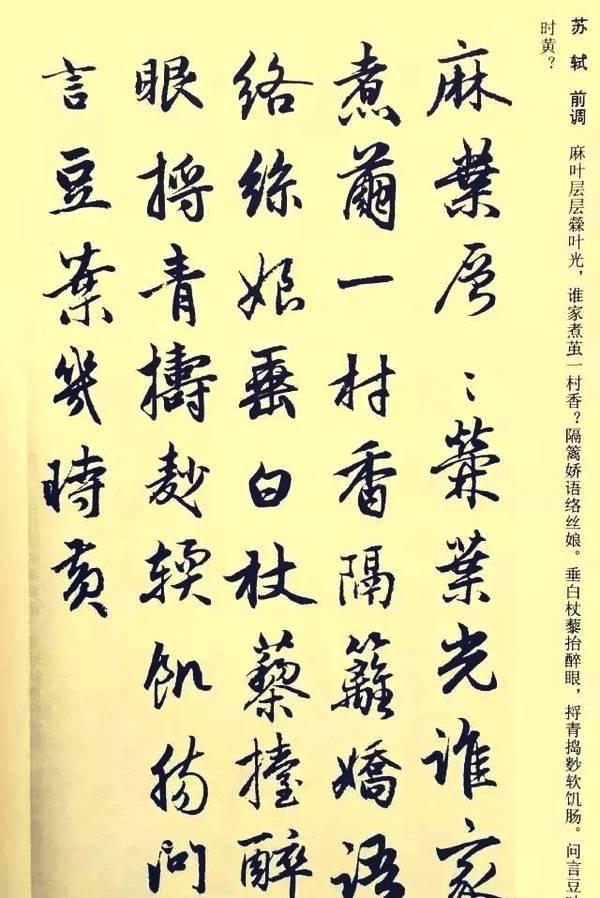 苏 轼 前调 麻叶层层檾叶光，谁家煮茧一村香？隔篱娇语络丝娘。垂白杖藜抬醉眼，捋青捣麨软饥肠。问言豆
时黄？
麻葉層〻檾葉光誰家
煮繭一村香隔籬嬌語
絡絲娘垂白杖藜擡醉
眼捋青擣麨輭飢腸問
言豆葉幾時黃